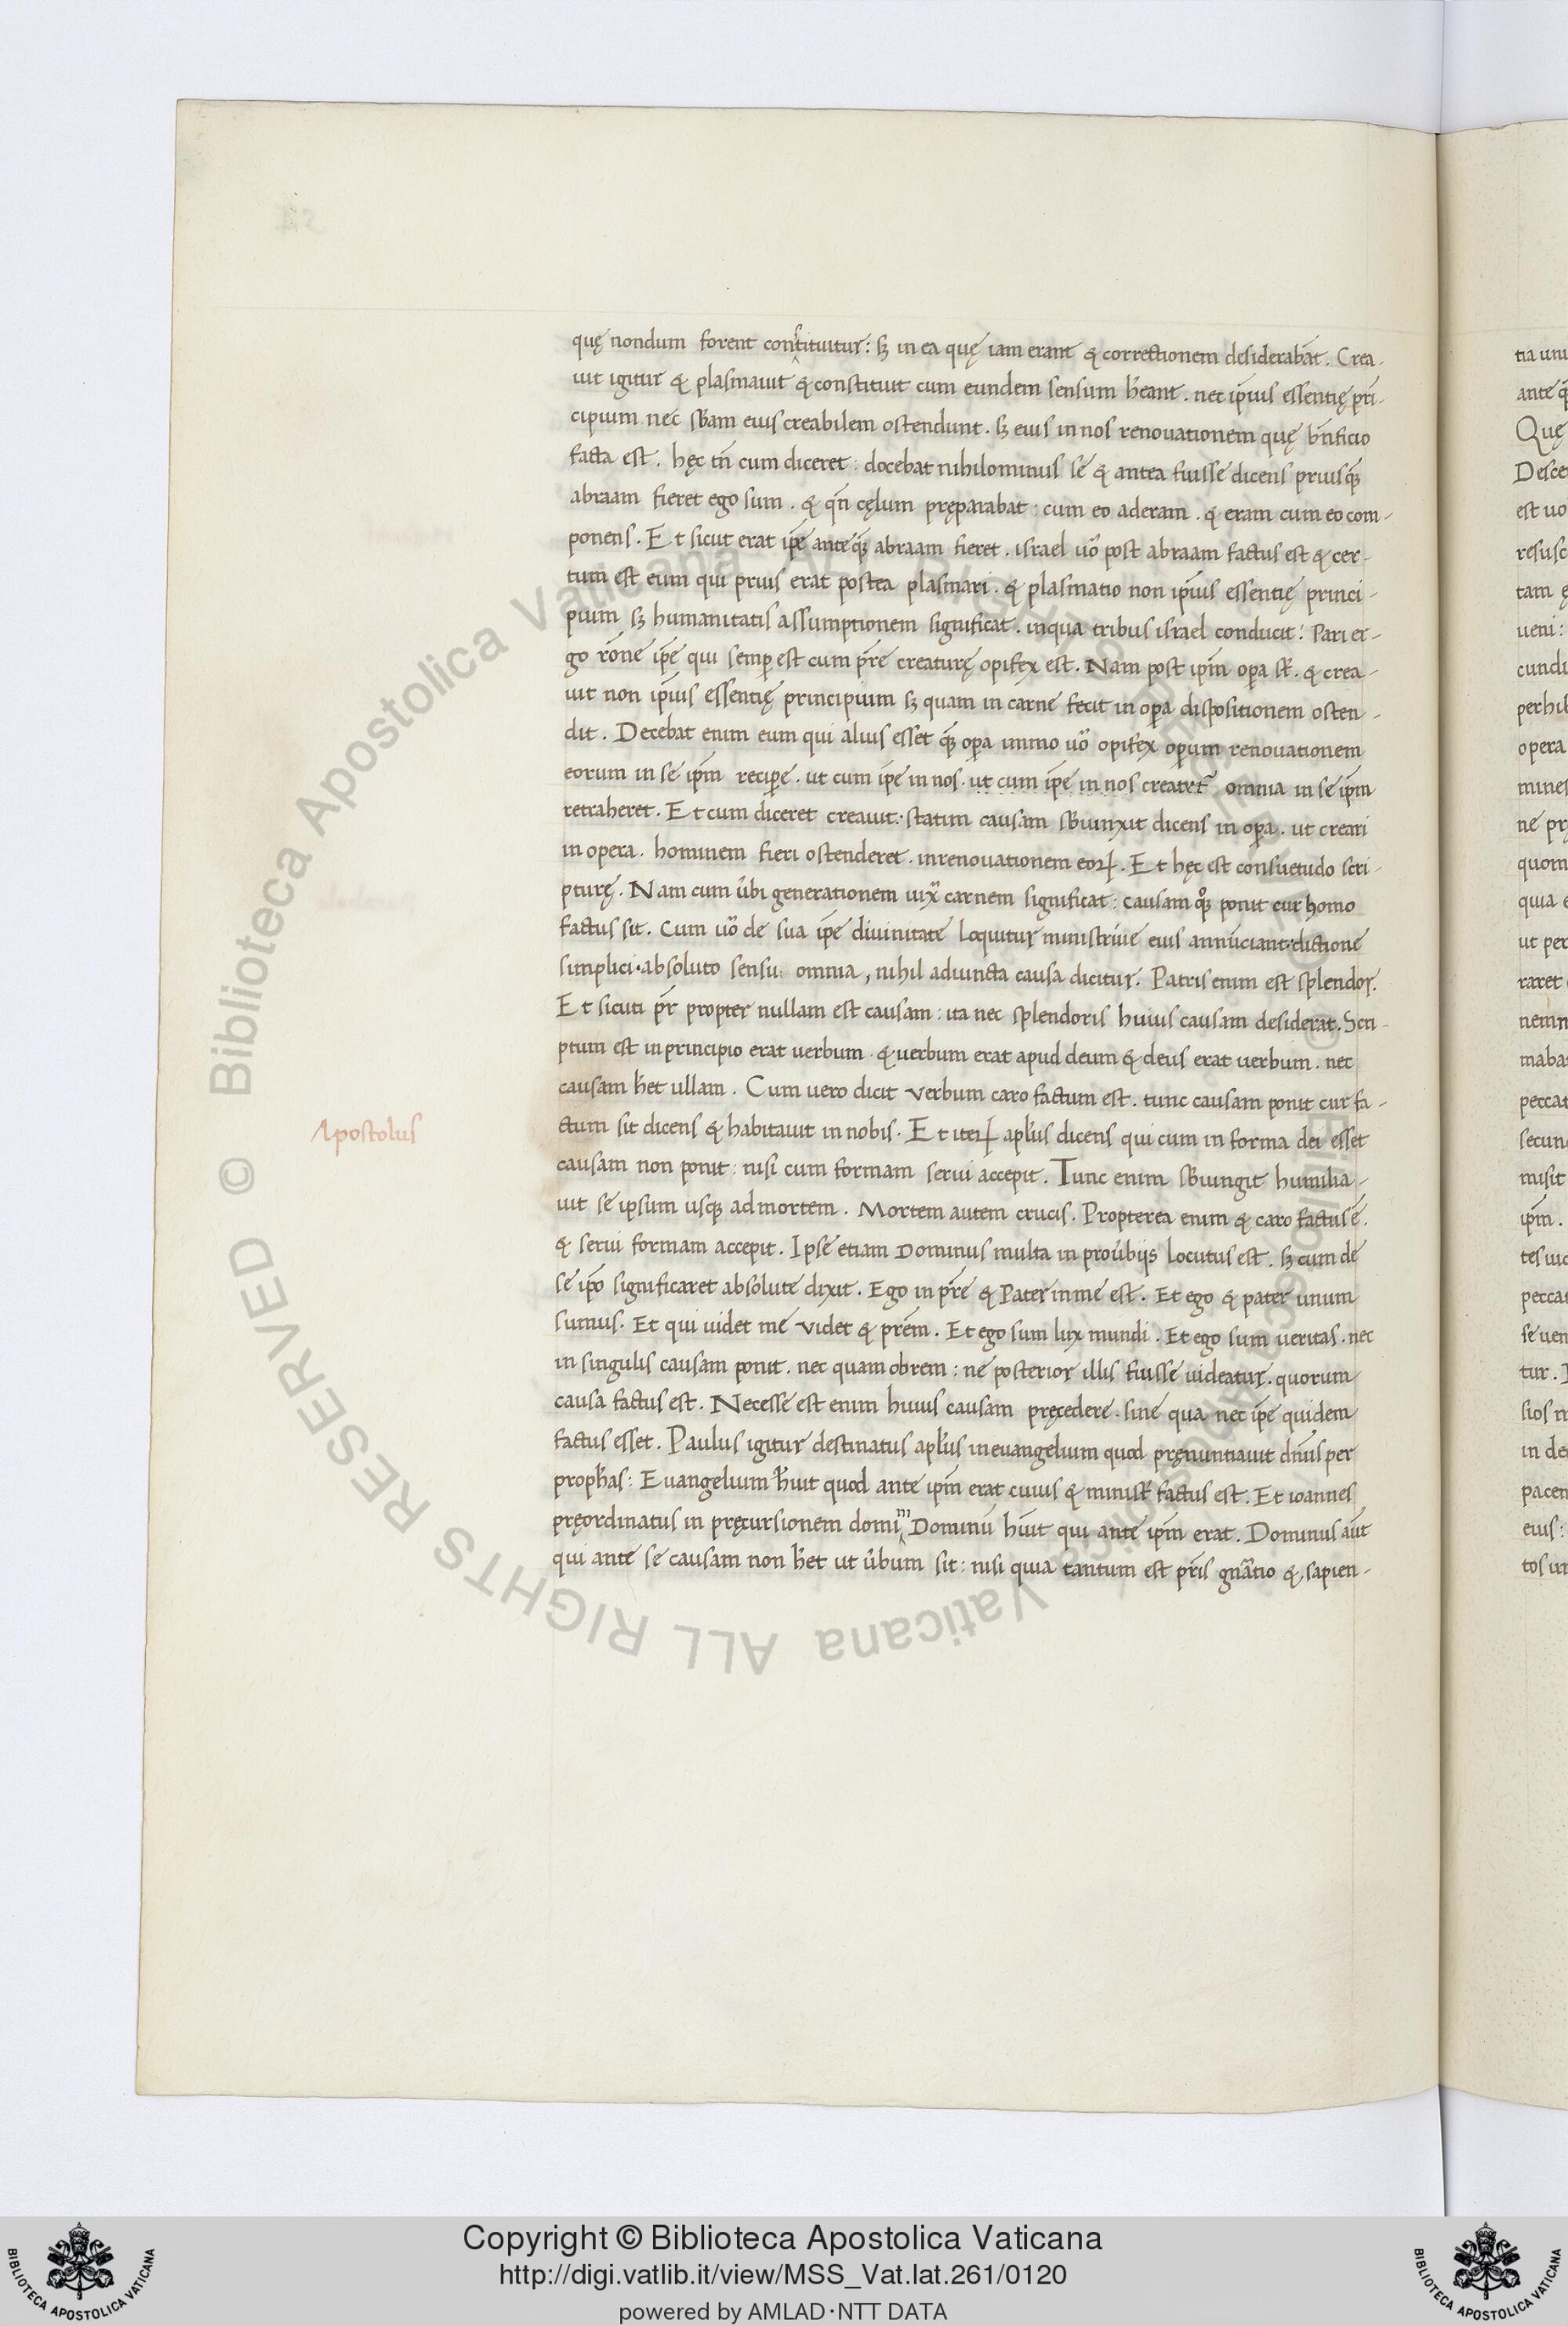 quę nondum forent constituitur: sꝫ in ea quę iam erant & correctionem desiderabāt. Crea-
uit igitur & plasmauit & constituit cum eundem sensum h̄eant. nec ip̄ius essentię pri̅-
cipium nec sb̄am eius creabilem ostendunt. sꝫ eius in nos renouationem quę bn̄ficio
facta est. hęc tn̄ cum diceret: docebat nihilominus se & antea fuisse dicens priusq̄ꝫ
abraam fieret ego sum. & qn̄ cęlum pręparabat: cum eo aderam. & eram cum eo com-
ponens. Et sicut erat ip̄e anteq̄ꝫ abraam fieret. israel uō post abraam factus est & cer-
tum est eum qui prius erat postea plasmari. & plasmatio non ip̄ius essentię princi-
pium sꝫ humanitatis assumptionem significat. inqua tribus israel conducit: Pari er-
go rōne ip̄e qui semꝑ est cum pr̄e creaturę opifex est. Nam post ip̄m oꝑa st̄. & crea-
uit non ip̄ius essentię principium sꝫ quam in carne fecit in oꝑa dispositionem osten-
dit. Decebat enim eum qui alius esset q̄ꝫ oꝑa immo uō opifex oꝑum renouationem
eorum in se ip̄m reciꝑe. ut cum ip̄e in nos. ut cum ip̄e in nos crearet̄ omnia in se ip̄m
retraheret. Et cum diceret creauit. statim causam sb̄iunxit dicens in oꝑa. ut creari
in opera. hominem fieri ostenderet. inrenouationem eoꝝ. Et hęc est consuetudo scri-
pturę. Nam cum ūbi generationem iuxͣ carnem significat: causam qͦꝫ ponit cur homo
factus sit. Cum uō de sua ip̄e diuinitate loquitur ministriue eius annūciant dictione
simplici. absoluto sensu: omnia, nihil adiuncta causa dicitur. Patris enim est splendor.
Et sicuti pr̄ propter nullam est causam: ita nec splendoris huius causam desiderat. Scri-
ptum est in principio erat uerbum. & uerbum erat apud deum & deus erat uerbum. nec
causam h̄et ullam. Cum uero dicit Verbum caro factum est. tunc causam ponit cur fa-
ctum sit dicens & habitauit in nobis. Et iteꝝ ap̄lus dicens qui cum in forma dei esset
causam non ponit: nisi cum formam serui accepit. Tunc enim sb̄iungit humilia-
uit se ipsum usqꝫ ad mortem. Mortem autem crucis. Propterea enim & caro factus ē.
& serui formam accepit. Ipse etiam Dominus multa in prou̅biis locutus est. sꝫ cum de
se ip̄o significaret absolute dixit. Ego in pr̄e & Pater in me est. Et ego & pater unum
sumus. Et qui uidet me Videt & pr̄em. Et ego sum lux mundi. Et ego sum ueritas. nec
in singulis causam ponit. nec quam obrem: ne posterior illis fuisse uideatur. quorum
causa factus est. Necesse est enim huius causam pręcedere. sine qua nec ip̄e quidem
factus esset. Paulus igitur destinatus ap̄lus in euangelium quod pręnuntiauit dn̄us per
proph̄as: Euangelium h̄uit quod ante ip̄m erat cuius & minist̄ factus est. Et ioannes
pręordinatus in pręcursionem domini Dominū h̄uit qui ante ip̄m erat. Dominus aūt
qui ante se causam non h̄et ut ūbum sit: nisi quia tantum est pr̄is gn̄atio & sapien-
Apostolus
tia
ante
Quę
est
tam
ueni:
opera
quia
ut per
raret
misit
ip̄m.
tur.
eius:
© Biblioteca Apostolica Vaticana ALL RIGHTS RESERVED
Copyright © Biblioteca Apostolica Vaticana
http://digi.vatlib.it/view/MSS_Vat.lat.261/0120
powered by AMLAD·NTT DATA
BIBLIOTECA APOSTOLICA VATICANA
BIBLIOTECA APOSTOLICA VATICANA